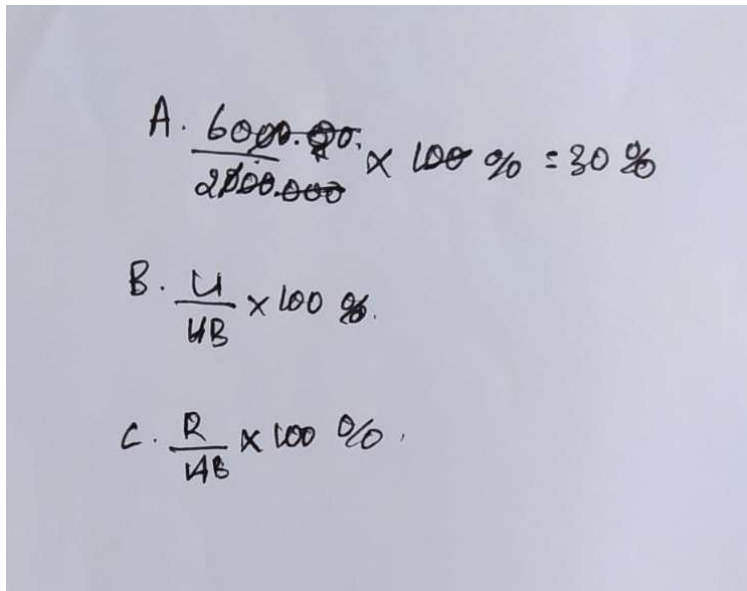 A. 6000.00. / 2000.000 × 100 % = 30 %
B. U / HB × 100 %.
C. R / HB × 100 %.